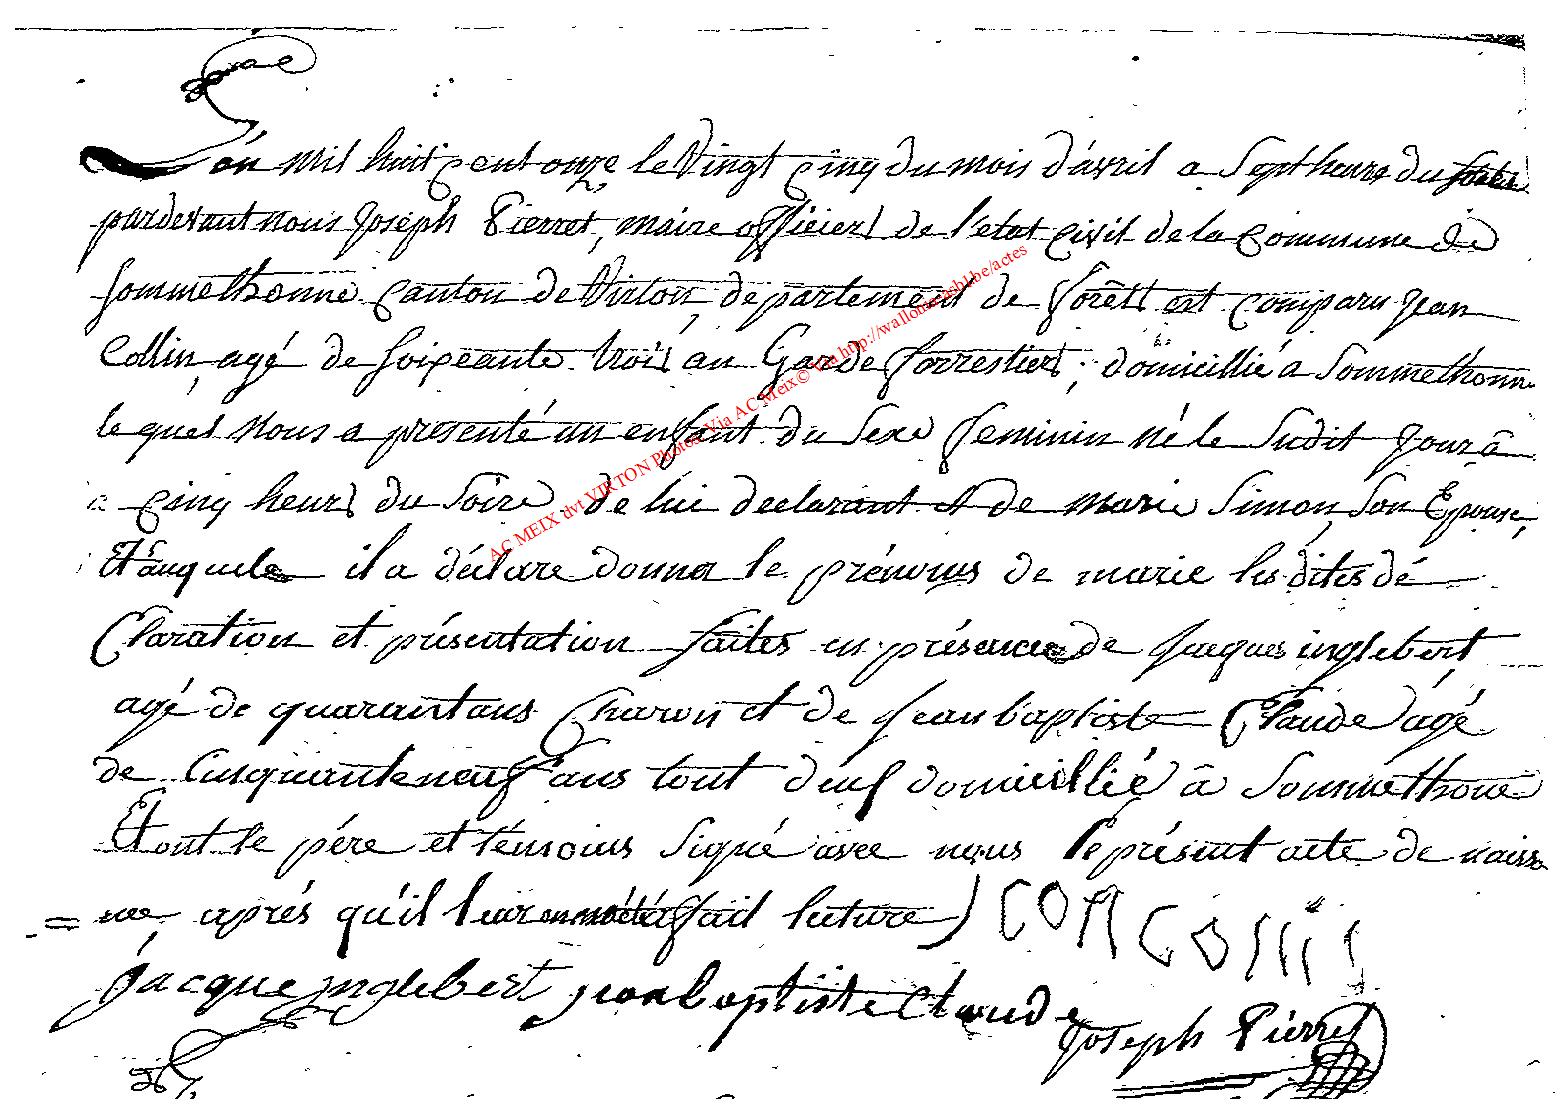 L'an mil huit cent onze le Vingt cinq du mois d'avril a Sept heures du soire
pardevant nous Joseph Pierret, maire officier de l'etat civil de la Commune de
Sommethonne canton de Virton, departement de forêts est comparu jean
Collin, agé de soixeante trois an Garde forrestier, domicillié a Sommethonne
le quel nous a presenté un enfant du sexe feminin né le sudit jour â
a cinq heurs du soire de lui declarant et de marie Simon, son Epouse,
Et auquele il a déclare donner le prénoms de marie les dites dé
Claration et présentation faites en présence de jacques inglebert
agé de quarant ans Charon et de jean baptiste Claude agé
de Cinquante neuf ans tout deuf domicillié â Sommethone
Et ont le père et témoins signé avec nous le présent acte de naiss
= nce après qu'il leur en a été fait lecture) JEAN COLLIN
jacque jnglebert jean baptiste Claude
Joseph Pierret
AC MEIX dvt VIRTON Photos Via AC Meix© Via http://wallonia-asbl.be/actes